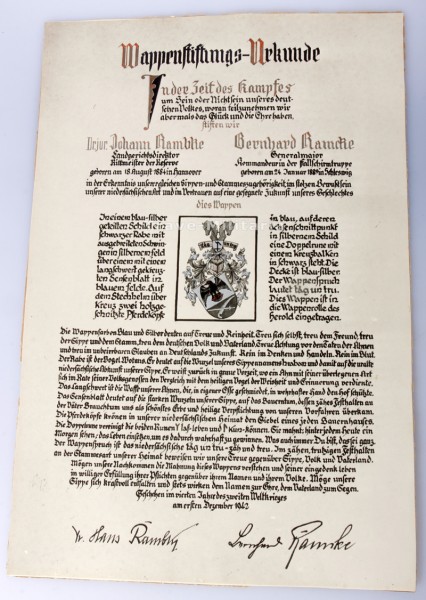 Wappenstiftungs-Urkunde
In der Zeit des Kampfes
um Sein oder Nichtsein unseres deut-
schen Volkes, woran teilzunehmen wir
abermals das Glück und die Ehre haben,
stiften wir
Dr. jur. Johann Rambke Bernhard Ramcke
Landgerichtsdirektor Generalmajor
Rittmeister der Reserve Kommandeur in der Fallschirmtruppe
geboren am 18. August 1884 in Hannover geboren am 24. Januar 1889 in Schleswig
in der Erkenntnis unserer gleichen Sippen- und Stammeszugehörigkeit, im stolzen Bewußtsein
unserer niedersächsischen Art und in Vertrauen auf eine gesegnete Zukunft unseres Geschlechtes
dies Wappen
In einem blau-silber
geteilten Schilde ein
schwarzer Rabe mit
ausgebreiteten Schwin-
gen in silbernem Feld
über einem mit einem
Langschwert gekreuz-
ten Sensenblatt in
blauem Felde. Auf
dem Stechhelm über
Kreuz zwei holzge-
schnitzte Pferdeköpfe
in blau, auf deren
Achsenschnittpunkt
in silbernem Schild
eine Doppelrune mit
einem Kreuzbalken
in schwarz steht. Die
Decke ist blau-silber.
Der Wappenspruch
lautet täg un tru.
Dies Wappen ist in
die Wappenrolle des
Herold eingetragen.
Die Wappenfarben Blau und Silber deuten auf Treue und Reinheit. Treu sich selbst, treu dem Freund, treu
der Sippe und dem Stamm, treu dem deutschen Volk und Vaterland. Treue Achtung vor den Taten der Ahnen
und treu im unbeirrbaren Glauben an Deutschlands Zukunft. Rein im Denken und Handeln. Rein im Blut.
Der Rabe ist der Vogel Wotans. Er deutet auf die Wurzel unseres Sippennamens
niedersächsische Abkunft unserer Sippe. Er weist zurück in graue Vorzeit, wo ein Ahn mit seiner überlegenen Art
sich im Rate seiner Volksgenossen den Vergleich mit dem heiligen Vogel der Weisheit und Erinnerung verdiente.
Das Langschwert ist die Waffe unserer Ahnen, die, in eigener Esse geschmiedet, in wehrhafter Hand den Hof schützte.
Das Sensenblatt deutet auf die starken Wurzeln unserer Sippe, auf das Bauerntum, dessen zähes Festhalten an
der Väter Brauchtum uns als schönstes Erbe und heilige Verpflichtung von unseren Vorfahren überkam.
Die Pferdeköpfe krönen in unserer niedersächsischen Heimat den Giebel eines jeden Bauernhauses.
Die Doppelrune vereinigt die beiden Runen
Morgen sehen; das Leben einsetzen, um es dadurch wahrhaft zu gewinnen. Was auch immer Du bist, das sei ganz.
Der Wappenspruch ist das niedersächsische täg un tru - zäh und treu. Im zähen, trutzigen Festhalten
an der Stammesart unserer Heimat beweisen wir unsere Treue gegenüber Sippe, Volk und Vaterland.
Mögen unsere Nachkommen die Mahnung dieses Wappens verstehen und seiner eingedenk leben
in williger Erfüllung ihrer Pflichten gegenüber ihrem Namen und ihrem Volke. Möge unsere
Sippe sich kraftvoll entfalten und stets wirken dem Namen zur Ehre, dem Vaterland zum Segen.
Geschehen im vierten Jahre des zweiten Weltkrieges
am ersten Dezember 1942
Dr. Hans Rambke Bernhard Ramcke